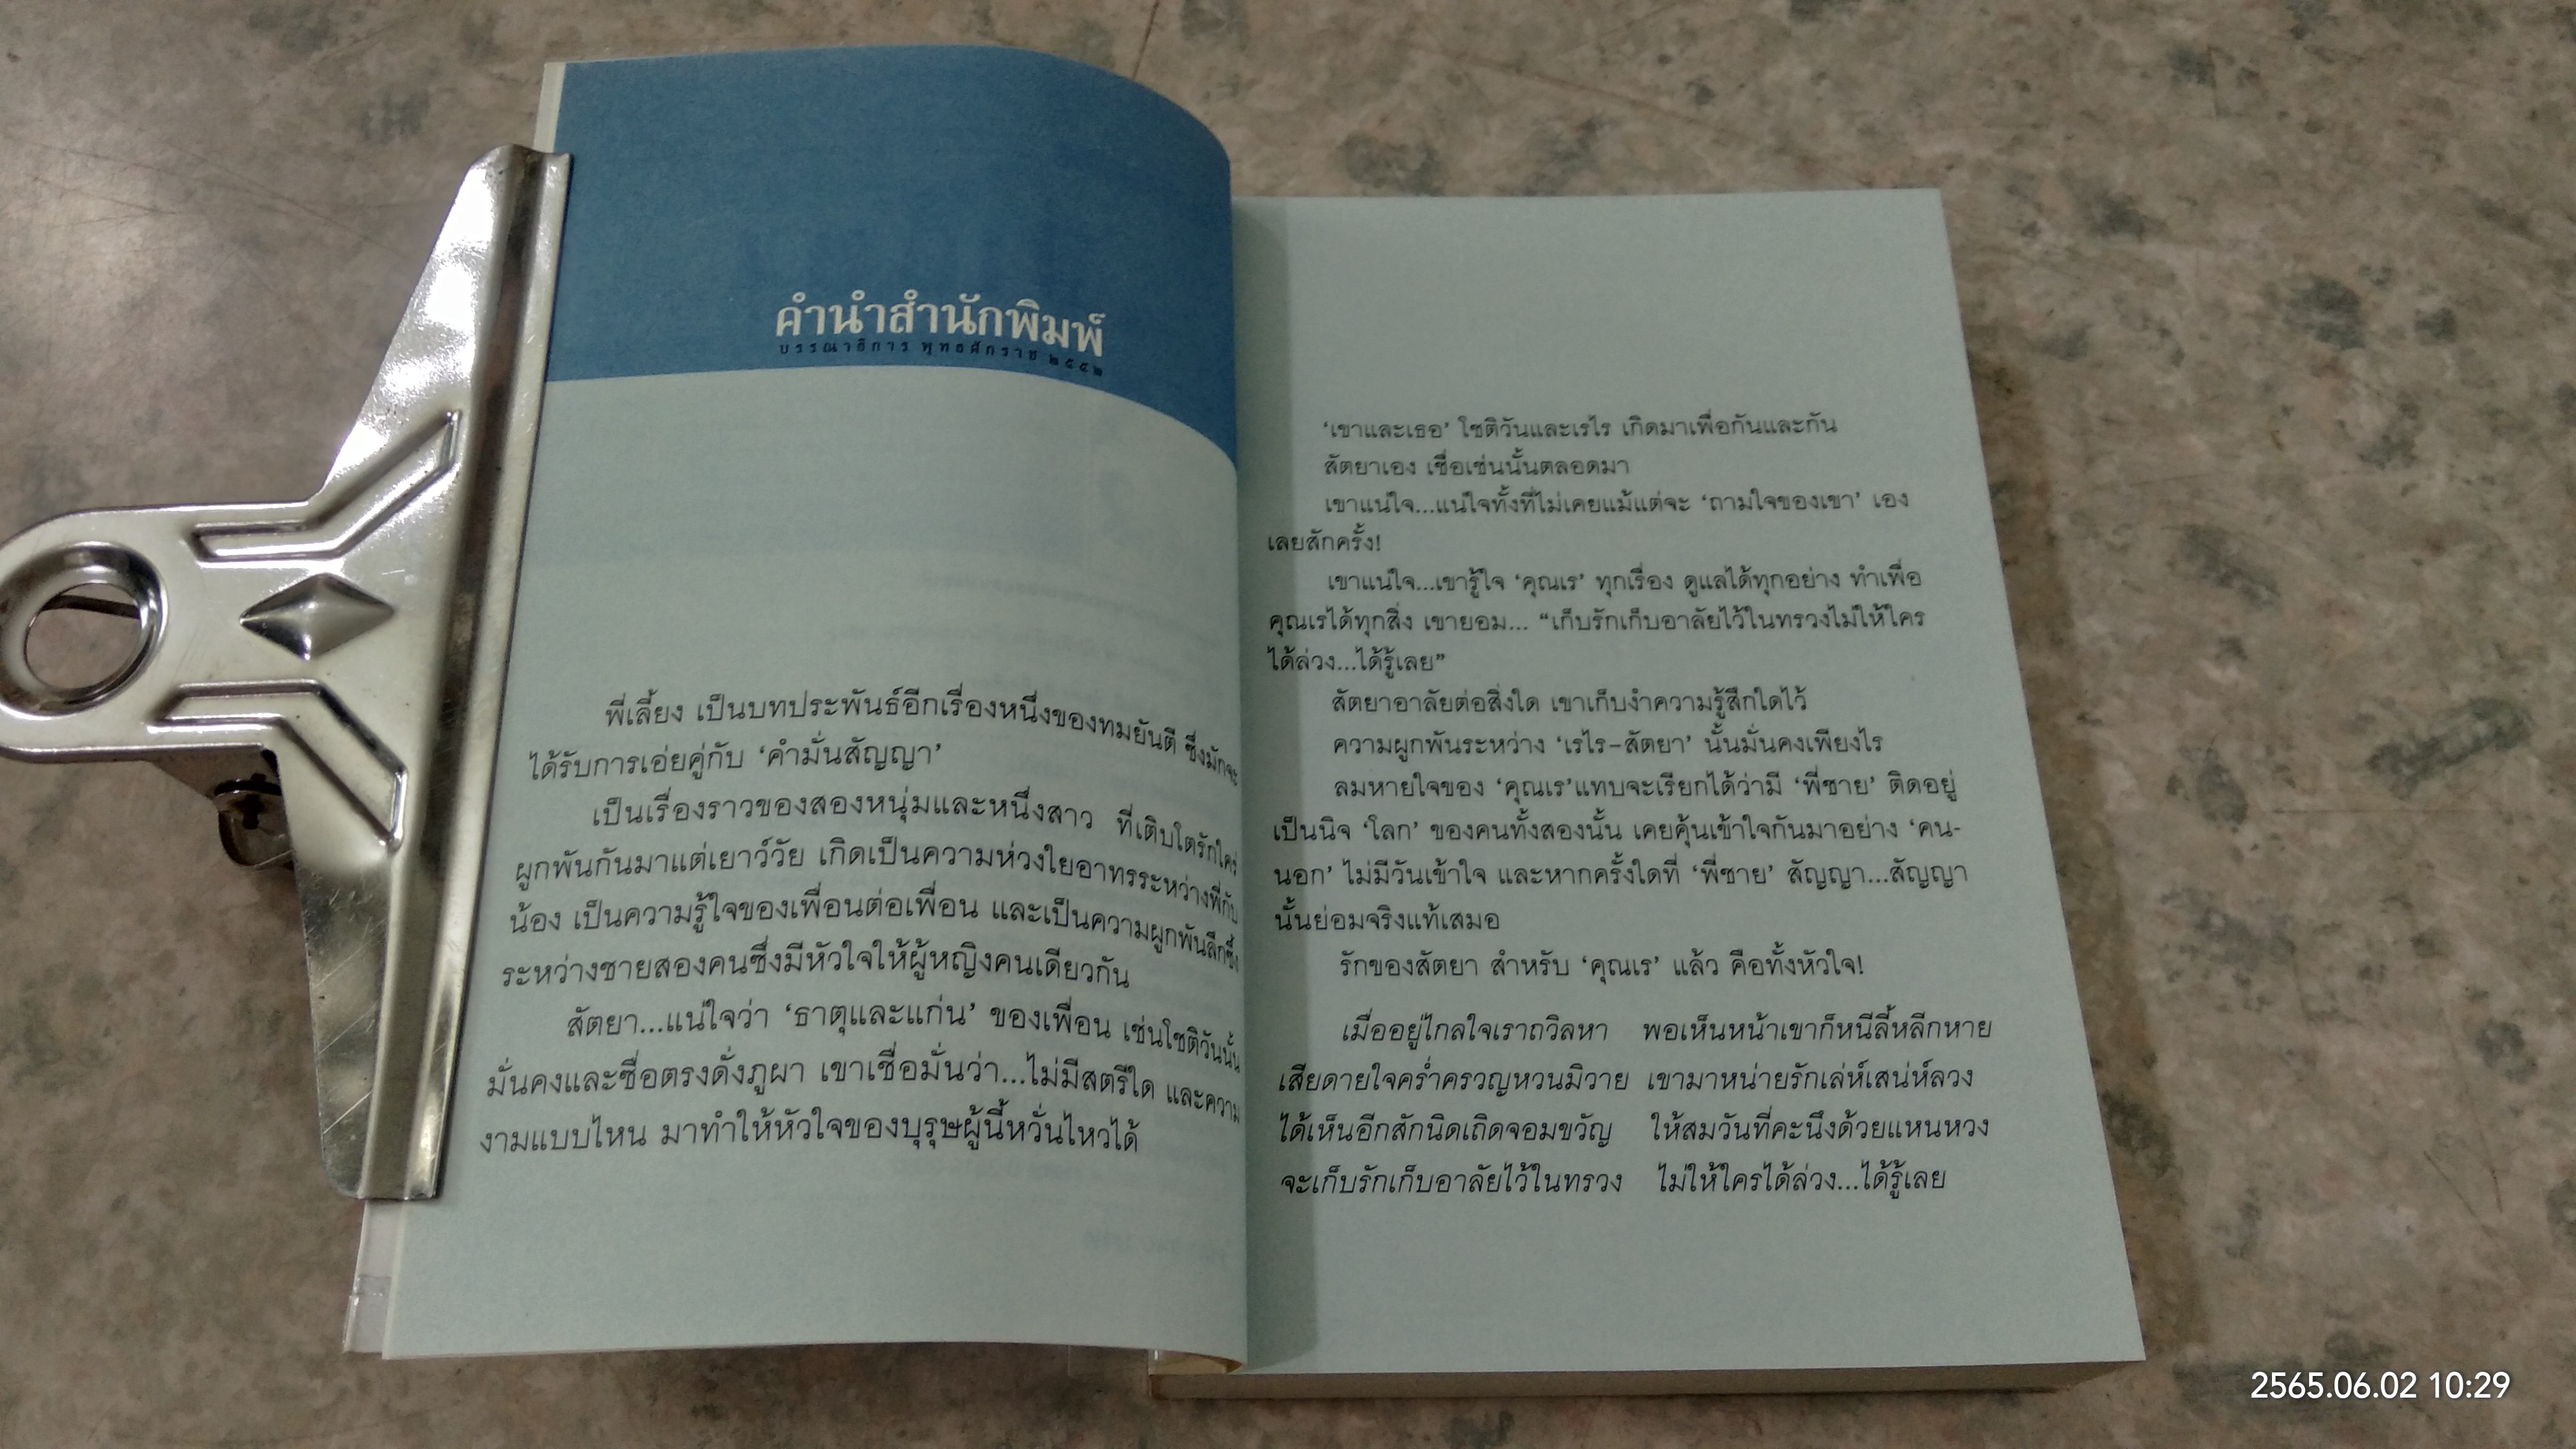 คำนำสำนักพิมพ์
บรรณาธิการ พุทธศักราช ๒๕๕๒
พี่เลี้ยง เป็นบทประพันธ์อีกเรื่องหนึ่งของทมยันตี ซึ่งมักจะ
ได้รับการเอ่ยคู่กับ ‘คำมั่นสัญญา’
เป็นเรื่องราวของสองหนุ่มและหนึ่งสาว ที่เติบโตรักใคร่
ผูกพันกันมาแต่เยาว์วัย เกิดเป็นความห่วงใยอาทรระหว่างพี่กับ
น้อง เป็นความรู้ใจของเพื่อนต่อเพื่อน และเป็นความผูกพันลึกซึ้ง
ระหว่างชายสองคนซึ่งมีหัวใจให้ผู้หญิงคนเดียวกัน
สัตยา...แน่ใจว่า ‘ธาตุและแก่น’ ของเพื่อน เช่นโชติวันนั้น
มั่นคงและซื่อตรงดั่งภูผา เขาเชื่อมั่นว่า...ไม่มีสตรีใด และความ
งามแบบไหน มาทำให้หัวใจของบุรุษผู้นี้หวั่นไหวได้
‘เขาและเธอ’ โชติวันและเรไร เกิดมาเพื่อกันและกัน
สัตยาเอง เชื่อเช่นนั้นตลอดมา
เขาแน่ใจ...แน่ใจทั้งที่ไม่เคยแม้แต่จะ ‘ถามใจของเขา’ เอง
เลยสักครั้ง!
เขาแน่ใจ...เขารู้ใจ ‘คุณเร’ ทุกเรื่อง ดูแลได้ทุกอย่าง ทำเพื่อ
คุณเรได้ทุกสิ่ง เขายอม... “เก็บรักเก็บอาลัยไว้ในทรวงไม่ให้ใคร
ได้ล่วง...ได้รู้เลย”
สัตยาอาลัยต่อสิ่งใด เขาเก็บงำความรู้สึกใดไว้
ความผูกพันระหว่าง ‘เรไร-สัตยา’ นั้นมั่นคงเพียงไร
ลมหายใจของ ‘คุณเร’แทบจะเรียกได้ว่ามี ‘พี่ชาย’ ติดอยู่
เป็นนิจ ‘โลก’ ของคนทั้งสองนั้น เคยคุ้นเข้าใจกันมาอย่าง ‘คน-
นอก’ ไม่มีวันเข้าใจ และหากครั้งใดที่ ‘พี่ชาย’ สัญญา...สัญญา
นั้นย่อมจริงแท้เสมอ
รักของสัตยา สำหรับ ‘คุณเร’ แล้ว คือทั้งหัวใจ!
เมื่ออยู่ไกลใจเราถวิลหา พอเห็นหน้าเขาก็หนีลี้หลีกหาย
เสียดายใจคร่ำครวญหวนมิวาย เขามาหน่ายรักเล่ห์เสน่ห์ลวง
ได้เห็นอีกสักนิดเถิดจอมขวัญ ให้สมวันที่คะนึงด้วยแหนหวง
จะเก็บรักเก็บอาลัยไว้ในทรวง ไม่ให้ใครได้ล่วง...ได้รู้เลย
2565.06.02 10:29